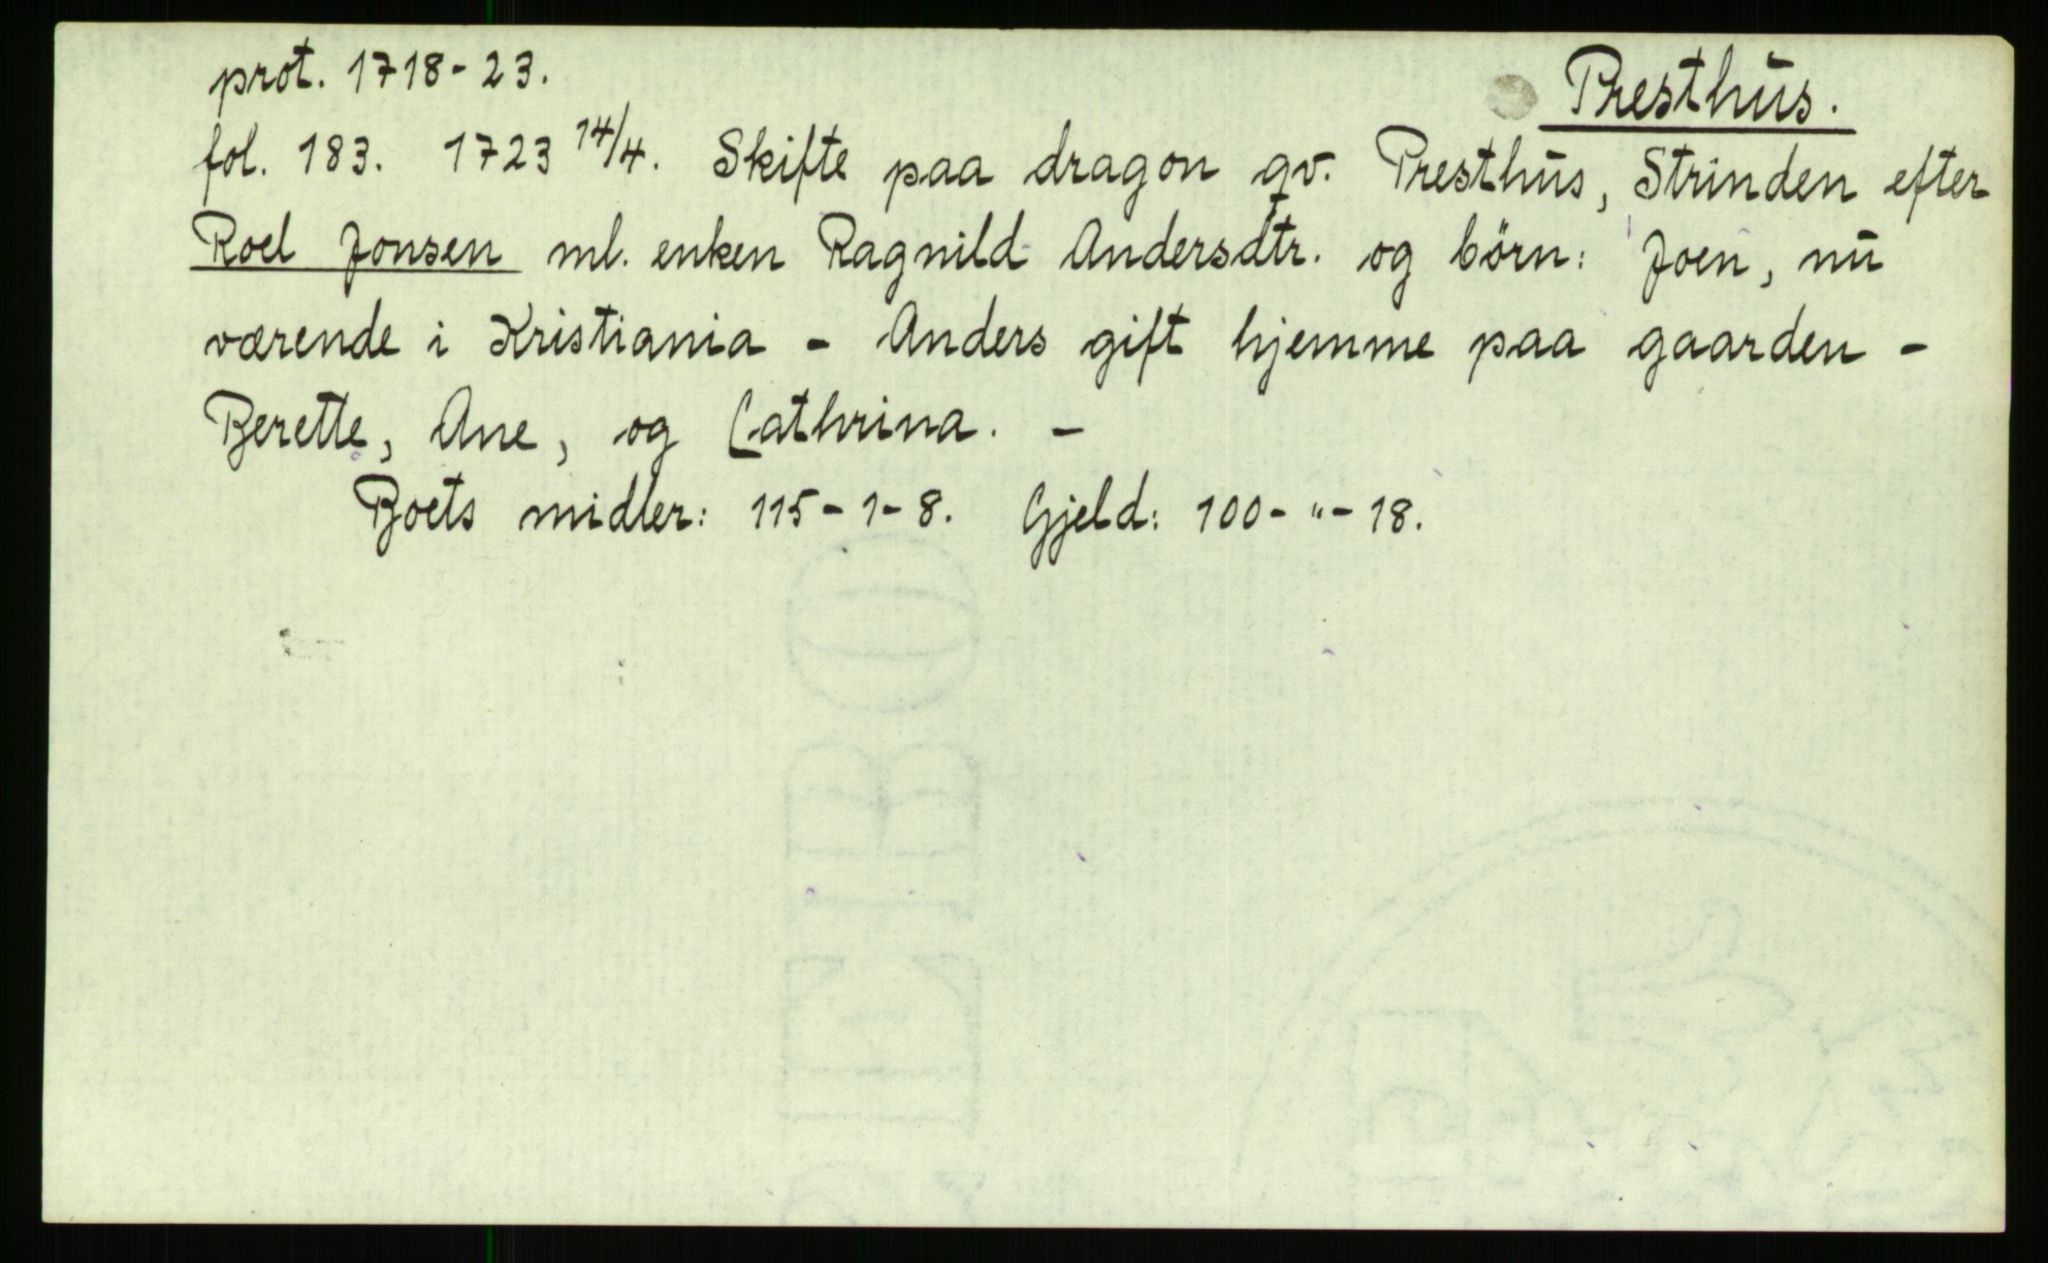 prot. 1718-23.
Presthus.
fol. 183. 1723 14/4. Skifte paa dragon qv. Presthus, Strinden efter
Roel Jonsen ml. enken Ragnild Andersdtr. og börn: Joen, nu
værende i Kristiania - Anders gift hjemme paa gaarden -
Berette, Ane, og Cathrina. -
Boets midler: 115-1-8. Gjeld: 100-"-18.